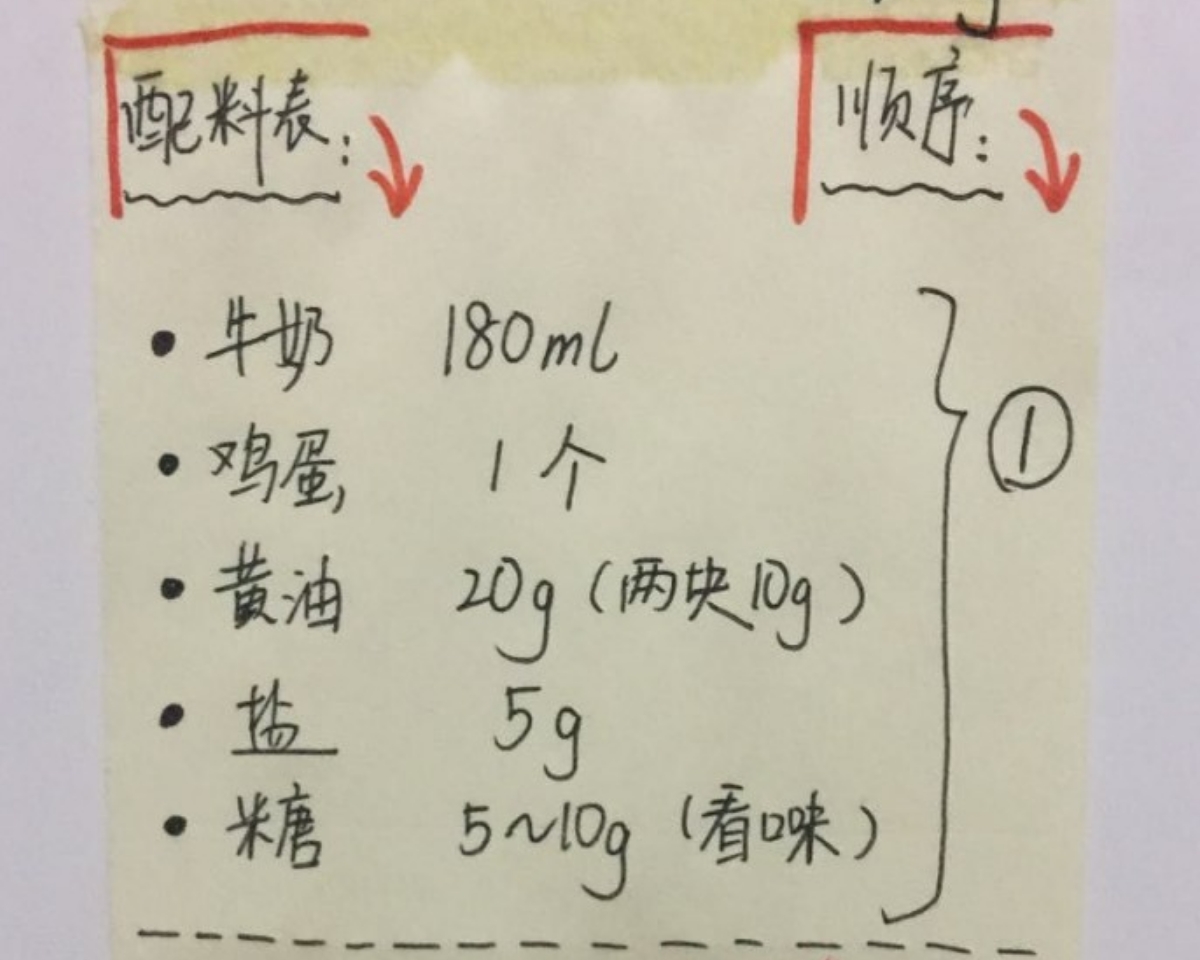 配料表: 顺序:
• 牛奶 180ml
• 鸡蛋 1个
• 黄油 20g (两块10g)
• 盐 5g
• 糖 5~10g (看口味)
①